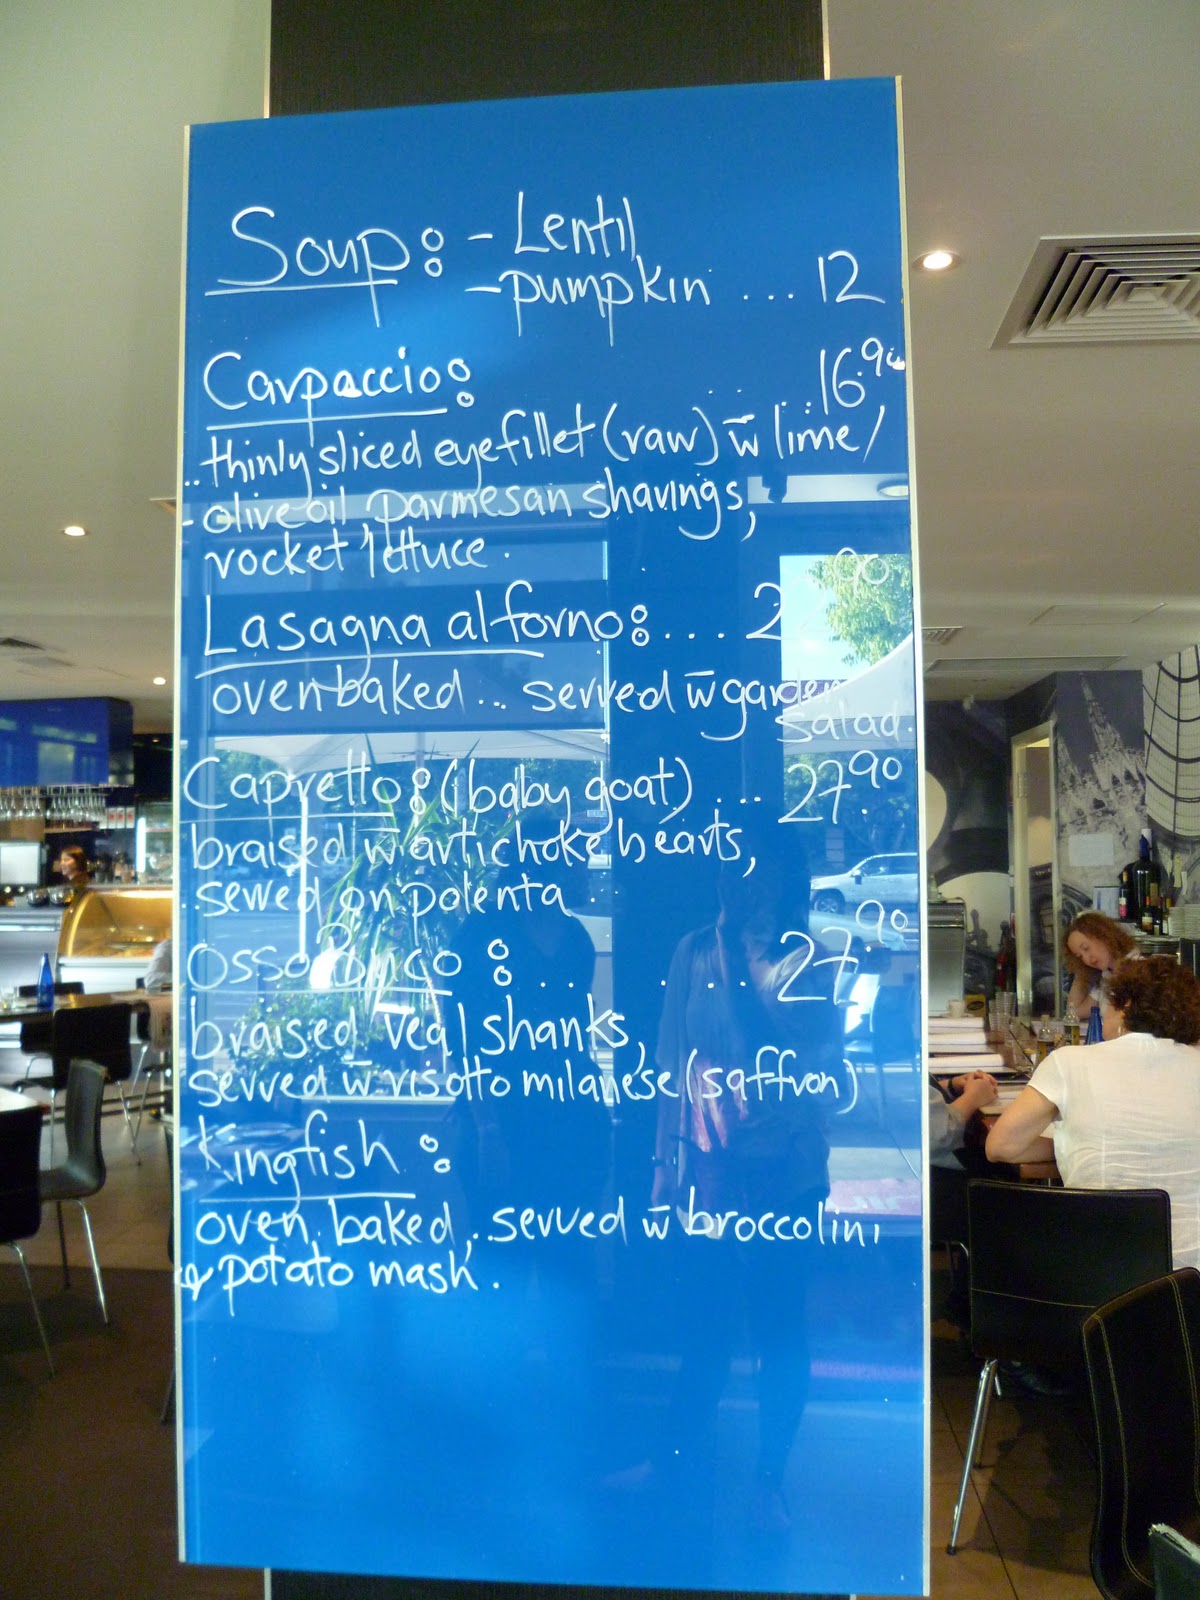 Soup: - Lentil
- pumpkin ... 12
Carpaccio: .. .. 16.90
.. thinly sliced eye fillet (raw) w̄ lime /
- olive oil, parmesan shavings,
rocket lettuce.
Lasagna al forno: ... 2 .90
oven baked... served w̄ garden
salad.
Capretto: (baby goat) ... 27.90
braised w̄ artichoke hearts,
served on polenta.
Osso Buco : .. . .. 27.90
braised veal shanks,
served w̄ risotto milanese (saffron)
Kingfish :
oven baked, .. served w̄ broccolini
& potato mash.